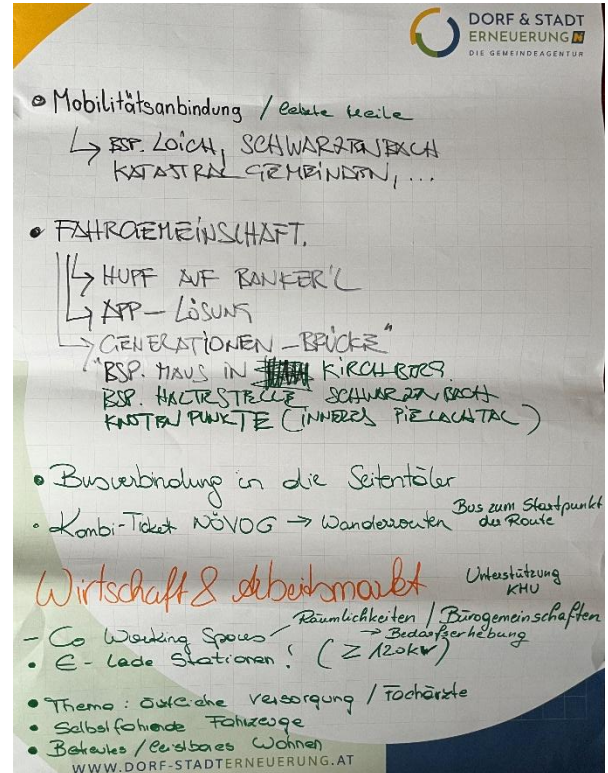 DORF & STADT
ERNEUERUNG N
DIE GEMEINDEAGENTUR
• Mobilitätsanbindung / letzte Meile
↳ BSP. LOICH, SCHWARZENBACH
KATASTRALGEMEINDEN, ...
• FAHRGEMEINSCHAFT.
↳ HUPF AUF BANKER'L
↳ APP-LÖSUNG
→ "GENERATIONEN-BRÜCKE"
BSP. HAUS IN KIRCHBERG.
BSP. HALTESTELLE SCHWARZENBACH
KNOTENPUNKTE (INNERES PIELACHTAL)
• Busverbindung in die Seitentäler
• Kombi-Ticket NÖVOG → Wanderrouten Bus zum Startpunkt der Route
Wirtschaft & Arbeitsmarkt Unterstützung KMU
– Co Working Spaces – Räumlichkeiten / Bürogemeinschaften
→ Bedarfserhebung
• E-Lade Stationen! (≥ 120kW)
• Thema: ärztliche Versorgung / Fachärzte
• Selbstfahrende Fahrzeuge
• Betreutes / leistbares Wohnen
WWW.DORF-STADTERNEUERUNG.AT